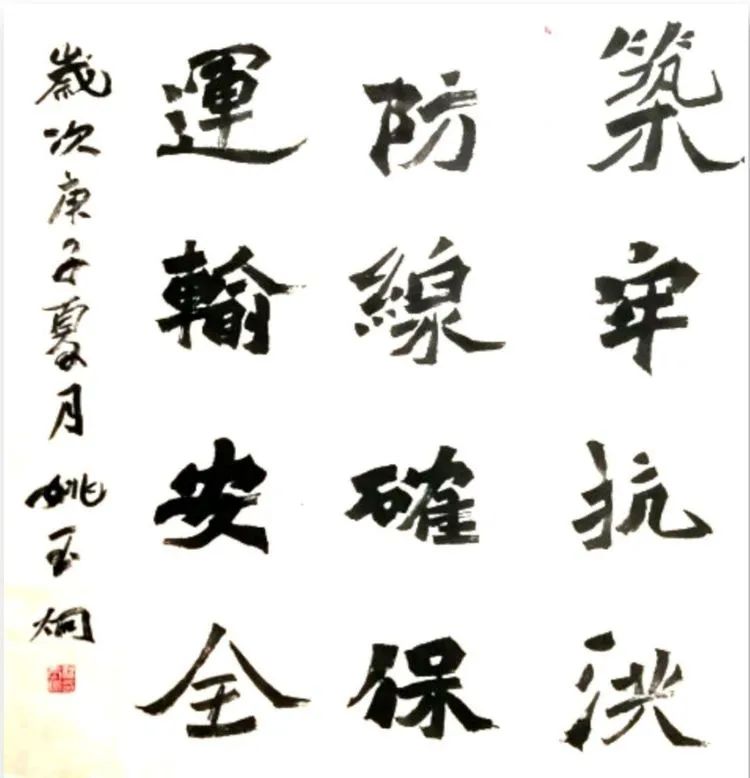 築牢抗洪
防線確保
運輸安全
歲次庚子夏月姚玉炯